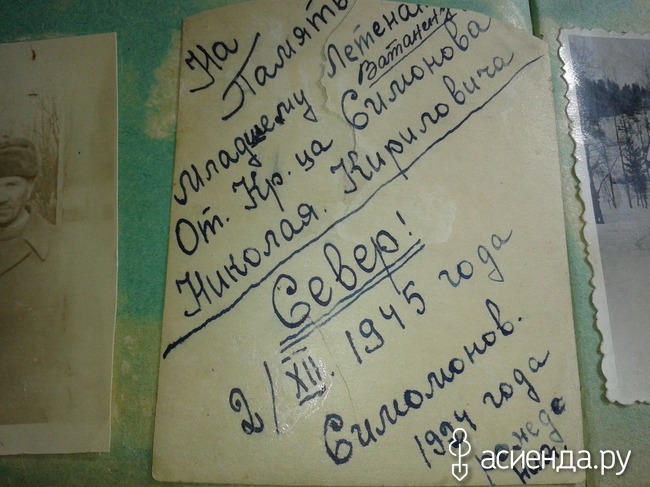 На
Память
Младшему Летенан.
Ватанену
От. Кр. ца Симонова
Николая. Кириловича
Север!
2/XII. 1945 года
Симомонов.
1924 года
асиенда.ру